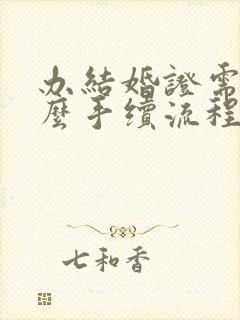 办結婚證需
麼手續流程
七和香